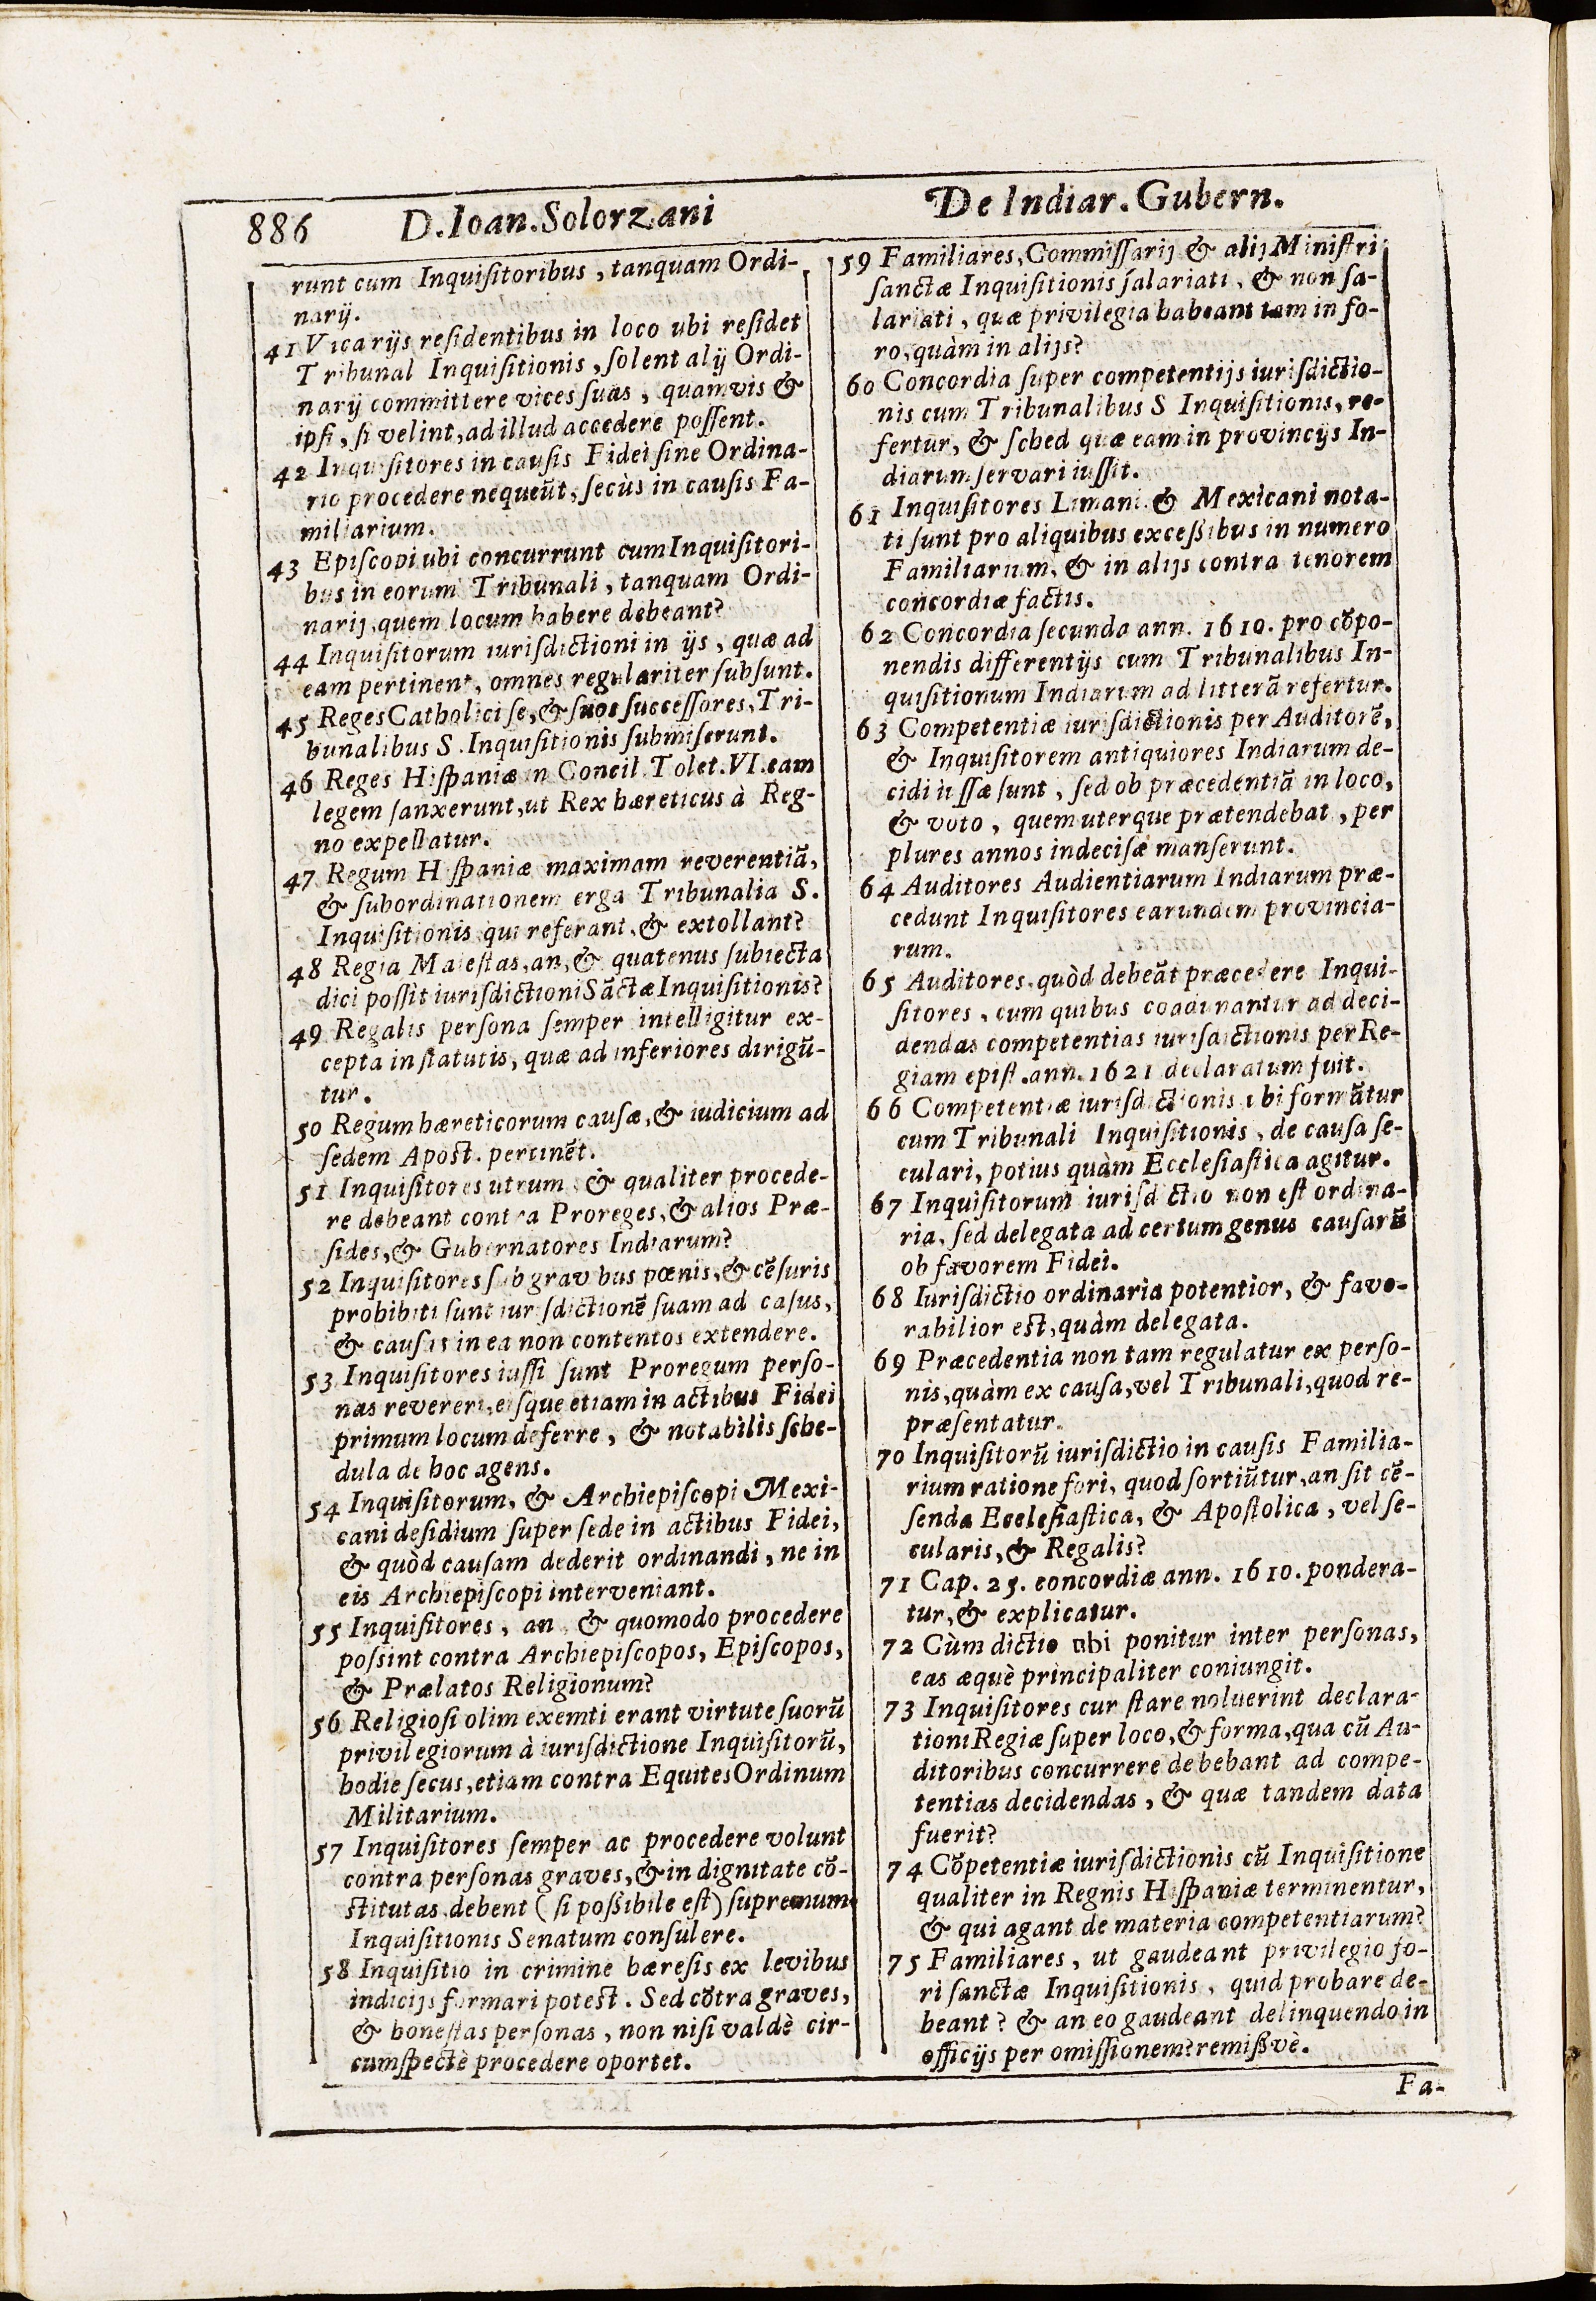 886 D.Ioan.Solorzani De Indiar.Gubern.
runt cum Inquiſitoribus, tanquam Ordi-
narij.
41 Vicarijs reſidentibus in loco ubi reſidet
Tribunal Inquiſitionis, ſolent alij Ordi-
narij committere vices ſuas, quamvis &
ipſi, ſi velint, ad illud accedere poſſent.
42 Inquiſitores in cauſis Fidei ſine Ordina-
rio procedere nequeūt, ſecùs in cauſis Fa-
miliarium.
43 Epiſcopi ubi concurrunt cum Inquiſitori-
bus in eorum Tribunali, tanquam Ordi-
narij, quem locum habere debeant?
44 Inquiſitorum iuriſdictioni in ijs, quæ ad
eam pertinent, omnes regulariter ſubſunt.
45 Reges Catholici ſe, & ſuos ſucceſſores, Tri-
bunalibus S. Inquiſitionis ſubmiſerunt.
46 Reges Hiſpaniæ in Concil. Tolet. VI. eam
legem ſanxerunt, ut Rex hæreticus à Reg-
no expellatur.
47 Regum Hiſpaniæ maximam reverentiā,
& ſubordinationem erga Tribunalia S.
Inquiſitionis qui referant, & extollant?
48 Regia Maieſtas, an, & quatenus ſubiecta
dici poſſit iuriſdictioni Sāctæ Inquiſitionis?
49 Regalis perſona ſemper intelligitur ex-
cepta in ſtatutis, quæ ad inferiores dirigū-
tur.
50 Regum hæreticorum cauſæ, & iudicium ad
ſedem Apoſt. pertinēt.
51 Inquiſitores utrum & qualiter procede-
re debeant contra Proreges, & alios Præ-
ſides, & Gubernatores Indiarum?
52 Inquiſitores ſub gravibus pœnis, & cēſuris
prohibiti ſunt iuriſdictionē ſuam ad caſus,
& cauſas in ea non contentos extendere.
53 Inquiſitores iuſſi ſunt Proregum perſo-
nas revereri, eiſque etiam in actibus Fidei
primum locum deferre, & notabilis ſche-
dula de hoc agens.
54 Inquiſitorum, & Archiepiſcopi Mexi-
cani deſidium ſuper ſede in actibus Fidei,
& quòd cauſam dederit ordinandi, ne in
eis Archiepiſcopi interveniant.
55 Inquiſitores, an & quomodo procedere
poſsint contra Archiepiſcopos, Epiſcopos,
& Prælatos Religionum?
56 Religioſi olim exemti erant virtute ſuorū
privilegiorum à iuriſdictione Inquiſitorū,
hodie ſecus, etiam contra Equites Ordinum
Militarium.
57 Inquiſitores ſemper ac procedere volunt
contra perſonas graves, & in dignitate cō-
ſtitutas, debent (ſi poſsibile eſt) ſupremum
Inquiſitionis Senatum conſulere.
58 Inquiſitio in crimine hæreſis ex levibus
indicijs formari poteſt. Sed cōtra graves,
& honeſtas perſonas, non niſi valdè cir-
cumſpectè procedere oportet.
59 Familiares, Commiſſarij & alij Miniſtri
ſanctæ Inquiſitionis ſalariati, & non ſa-
lariati, quæ privilegia habeant tam in fo-
ro, quàm in alijs?
60 Concordia ſuper competentijs iuriſdictio-
nis cum Tribunalibus S Inquiſitionis, re-
fertur, & ſched quæ eam in provincijs In-
diarum ſervari iuſſit.
61 Inquiſitores Limani & Mexicani nota-
ti ſunt pro aliquibus exceſsibus in numero
Familiarium, & in alijs contra tenorem
concordiæ factis.
62 Concordia ſecunda ann. 1610. pro cōpo-
nendis differentijs cum Tribunalibus In-
quiſitionum Indiarum ad litterā refertur.
63 Competentiæ iuriſdictionis per Auditorē,
& Inquiſitorem antiquiores Indiarum de-
cidi iuſſæ ſunt, ſed ob præcedentiā in loco,
& voto, quem uterque prætendebat, per
plures annos indeciſæ manſerunt.
64 Auditores Audientiarum Indiarum præ-
cedunt Inquiſitores earundem provincia-
rum.
65 Auditores, quòd debeāt præcedere Inqui-
ſitores, cum quibus coadunantur ad deci-
dendas competentias iuriſdictionis per Re-
giam epiſt. ann. 1621 declaratum fuit.
66 Competentiæ iuriſdictionis ubi formātur
cum Tribunali Inquiſitionis, de cauſa ſe-
culari, potius quàm Eccleſiaſtica agitur.
67 Inquiſitorum iuriſdictio non eſt ordina-
ria, ſed delegata ad certum genus cauſarū
ob favorem Fidei.
68 Iuriſdictio ordinaria potentior, & favo-
rabilior eſt, quàm delegata.
69 Præcedentia non tam regulatur ex perſo-
nis, quàm ex cauſa, vel Tribunali, quod re-
præſentatur.
70 Inquiſitorū iuriſdictio in cauſis Familia-
rium ratione fori, quod ſortiūtur, an ſit cē-
ſenda Eccleſiaſtica, & Apoſtolica, vel ſe-
cularis, & Regalis?
71 Cap. 25. concordiæ ann. 1610. pondera-
tur, & explicatur.
72 Cùm dictio ubi ponitur inter perſonas,
eas æquè principaliter coniungit.
73 Inquiſitores cur ſtare noluerint declara-
tioni Regiæ ſuper loco, & forma, qua cū Au-
ditoribus concurrere debebant ad compe-
tentias decidendas, & quæ tandem data
fuerit?
74 Cōpetentiæ iuriſdictionis cū Inquiſitione
qualiter in Regnis Hiſpaniæ terminentur,
& qui agant de materia competentiarum?
75 Familiares, ut gaudeant privilegio fo-
ri ſanctæ Inquiſitionis, quid probare de-
beant? & an eo gaudeant delinquendo in
officijs per omiſſionem? remiſsvè.
Fa-